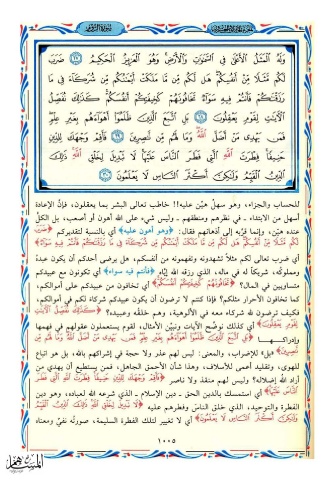 سُورَةُ الرُّومِ
وَلَهُ الْمَثَلُ الْأَعْلَىٰ فِي السَّمَاوَاتِ وَالْأَرْضِ وَهُوَ الْعَزِيزُ الْحَكِيمُ ﴿٢٧﴾ ضَرَبَ
لَكُم مَّثَلًا مِّنْ أَنفُسِكُمْ هَل لَّكُم مِّن مَّا مَلَكَتْ أَيْمَانُكُم مِّن شُرَكَاءَ فِي مَا
رَزَقْنَاكُمْ فَأَنتُمْ فِيهِ سَوَاءٌ تَخَافُونَهُمْ كَخِيفَتِكُمْ أَنفُسَكُمْ كَذَٰلِكَ نُفَصِّلُ
الْآيَاتِ لِقَوْمٍ يَعْقِلُونَ ﴿٢٨﴾ بَلِ اتَّبَعَ الَّذِينَ ظَلَمُوا أَهْوَاءَهُم بِغَيْرِ عِلْمٍ
فَمَن يَهْدِي مَنْ أَضَلَّ اللَّهُ وَمَا لَهُم مِّن نَّاصِرِينَ ﴿٢٩﴾ فَأَقِمْ وَجْهَكَ لِلدِّينِ
حَنِيفًا فِطْرَتَ اللَّهِ الَّتِي فَطَرَ النَّاسَ عَلَيْهَا لَا تَبْدِيلَ لِخَلْقِ اللَّهِ ذَٰلِكَ
الدِّينُ الْقَيِّمُ وَلَٰكِنَّ أَكْثَرَ النَّاسِ لَا يَعْلَمُونَ ﴿٣٠﴾
للحساب والجزاء، وهو سهلٌ هيّن عليه!! خاطب تعالى البشر بما يعقلون، فإنَّ الإعادة
أسهل من الابتداء - في نظرهم ومنطقهم - وليس شيء على الله أهون أو أصعب، بل الكلُّ
عنده هيّن، وإنما قرَّبه إلى أذهانهم فقال: ﴿وهو أهون عليه﴾ أي بالنسبة لتقديركم ﴿ضَرَبَ
لَكُم مَّثَلًا مِّنْ أَنفُسِكُمْ هَل لَّكُم مِّن مَّا مَلَكَتْ أَيْمَانُكُم مِّن شُرَكَاءَ فِي مَا رَزَقْنَاكُمْ فَأَنتُمْ فِيهِ سَوَاءٌ﴾
أي ضرب تعالى لكم مثلاً تشهدونه وتفهمونه من أنفسكم، هل يرضى أحدكم أن يكون عبدهُ
ومملوكُه، شريكاً له في ماله، الذي رزقه الله إيَّاه ﴿فأنتم فيه سواء﴾ أي تكونون مع عبيدكم
متساويين في المال؟ ﴿تَخَافُونَهُمْ كَخِيفَتِكُمْ أَنفُسَكُمْ﴾ أي تخافون من عبيدكم على أموالكم،
كما تخافون الأحرار مثلكم؟ فإذا كنتم لا ترضون أن يكون عبيدكم شركاء لكم في أموالكم،
فكيف ترضون لله شركاء معه في الألوهية، وهم خلقُه وعبيده؟ ﴿كَذَٰلِكَ نُفَصِّلُ الْآيَاتِ
لِقَوْمٍ يَعْقِلُونَ﴾ أي كذلك نوضِّح الآيات ونبيِّن الأمثال، لقوم يستعملون عقولهم في فهمها
وإدراكها ﴿بَلِ اتَّبَعَ الَّذِينَ ظَلَمُوا أَهْوَاءَهُم بِغَيْرِ عِلْمٍ فَمَن يَهْدِي مَنْ أَضَلَّ اللَّهُ وَمَا لَهُم مِّن
نَّاصِرِينَ﴾ ﴿بل﴾ للإضراب، والمعنى: ليس لهم عذر ولا حجة في إشراكهم بالله، بل هو اتباع
للهوى، وتقليد أعمى للأسلاف، وهذا شأن الأحمق الجاهل، فمن يستطيع أن يهدي من
أراد الله إضلاله؟ وليس لهم منقذ ولا ناصر ﴿فَأَقِمْ وَجْهَكَ لِلدِّينِ حَنِيفًا فِطْرَتَ اللَّهِ الَّتِي فَطَرَ
النَّاسَ عَلَيْهَا﴾ أي استمسك بالدين الحق - دين الإسلام - الذي شرعه الله لعباده، وهو دين
الفطرة والتوحيد، الذي خلق الناسَ وفطرهم عليه ﴿لَا تَبْدِيلَ لِخَلْقِ اللَّهِ ذَٰلِكَ الدِّينُ الْقَيِّمُ
وَلَٰكِنَّ أَكْثَرَ النَّاسِ لَا يَعْلَمُونَ﴾ أي لا تغيير لتلك الفطرة السليمة، صورتُه نفيٌ ومعناه
١٠٠٥